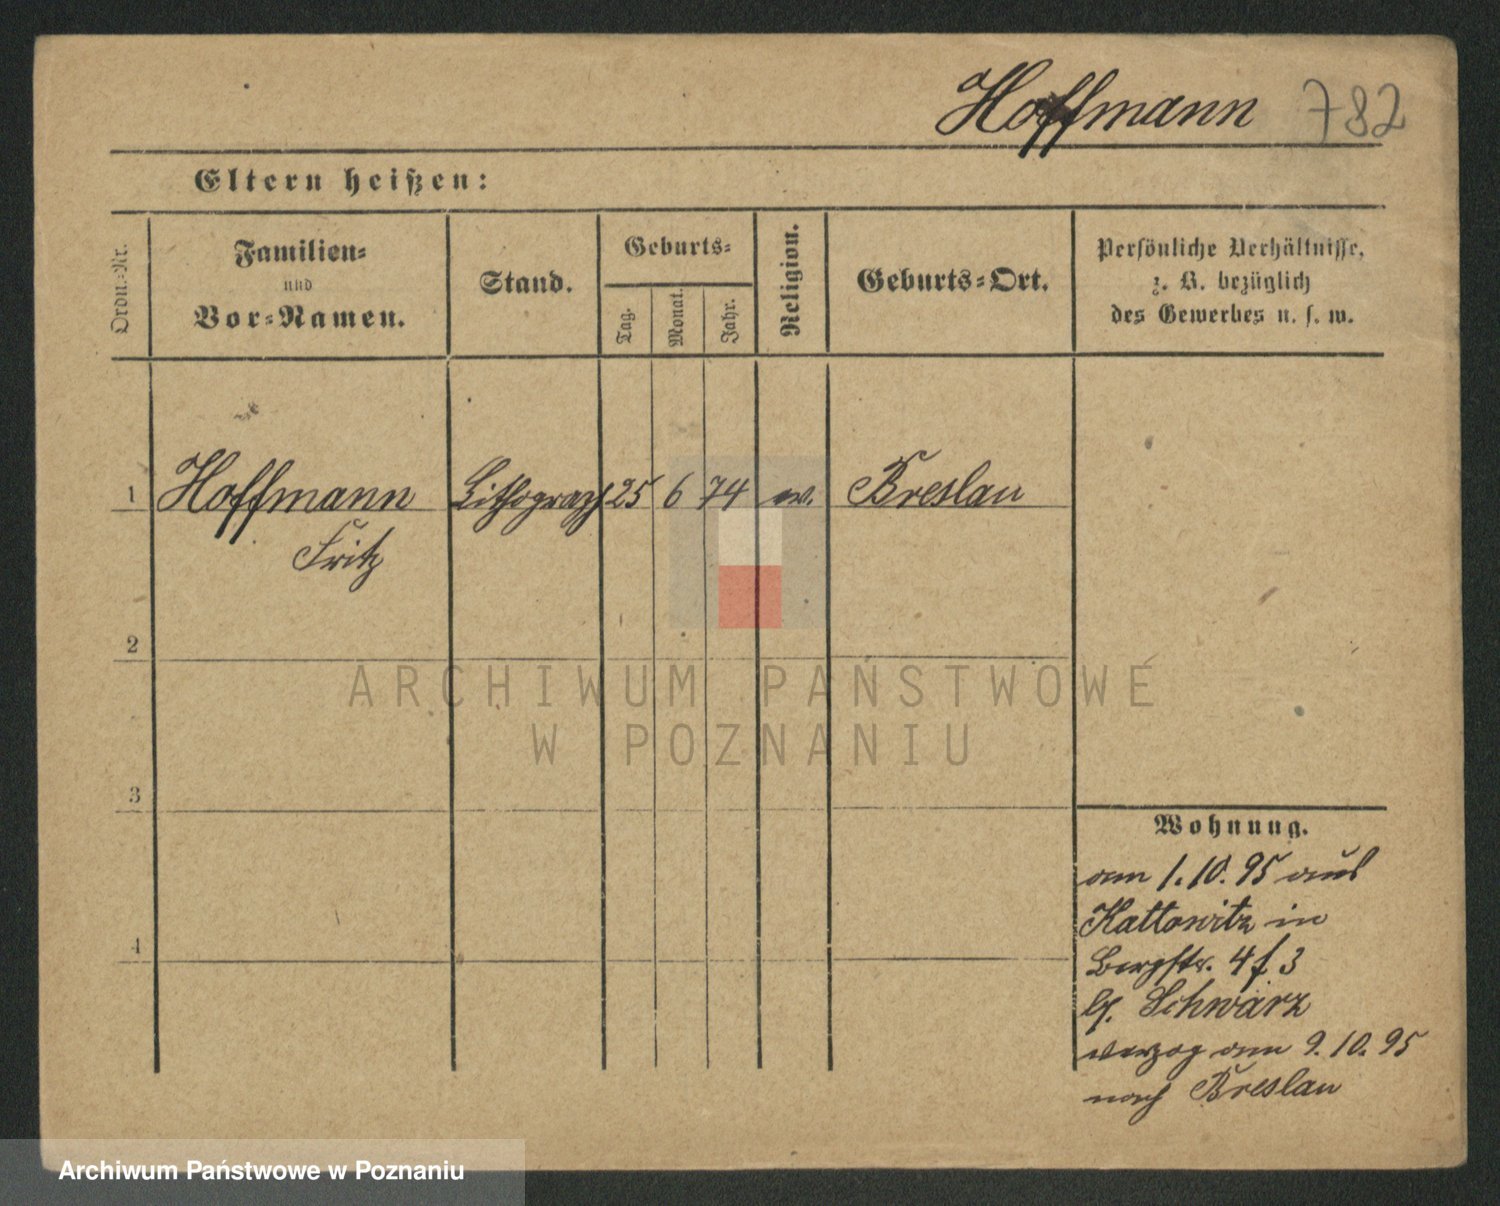 Hoffmann 782
Eltern heißen:
Ordn.-Nr.
Familien-
und
Vor-Namen.
Stand.
Geburts-
Tag.
Monat.
Jahr.
Religion.
Geburts-Ort.
Persönliche Verhältnisse,
z. B. bezüglich
des Gewerbes u. s. w.
1 Hoffmann Lithograph 25 6 74 ev. Breslau
Fritz
2
3
4
Wohnung.
am 1.10.95 aus
Kattowitz in
Bergstr. 4 f 3
b/. Schwarz
verzog am 9.10.95
nach Breslau
ARCHIWUM PAŃSTWOWE
W POZNANIU
Archiwum Państwowe w Poznaniu